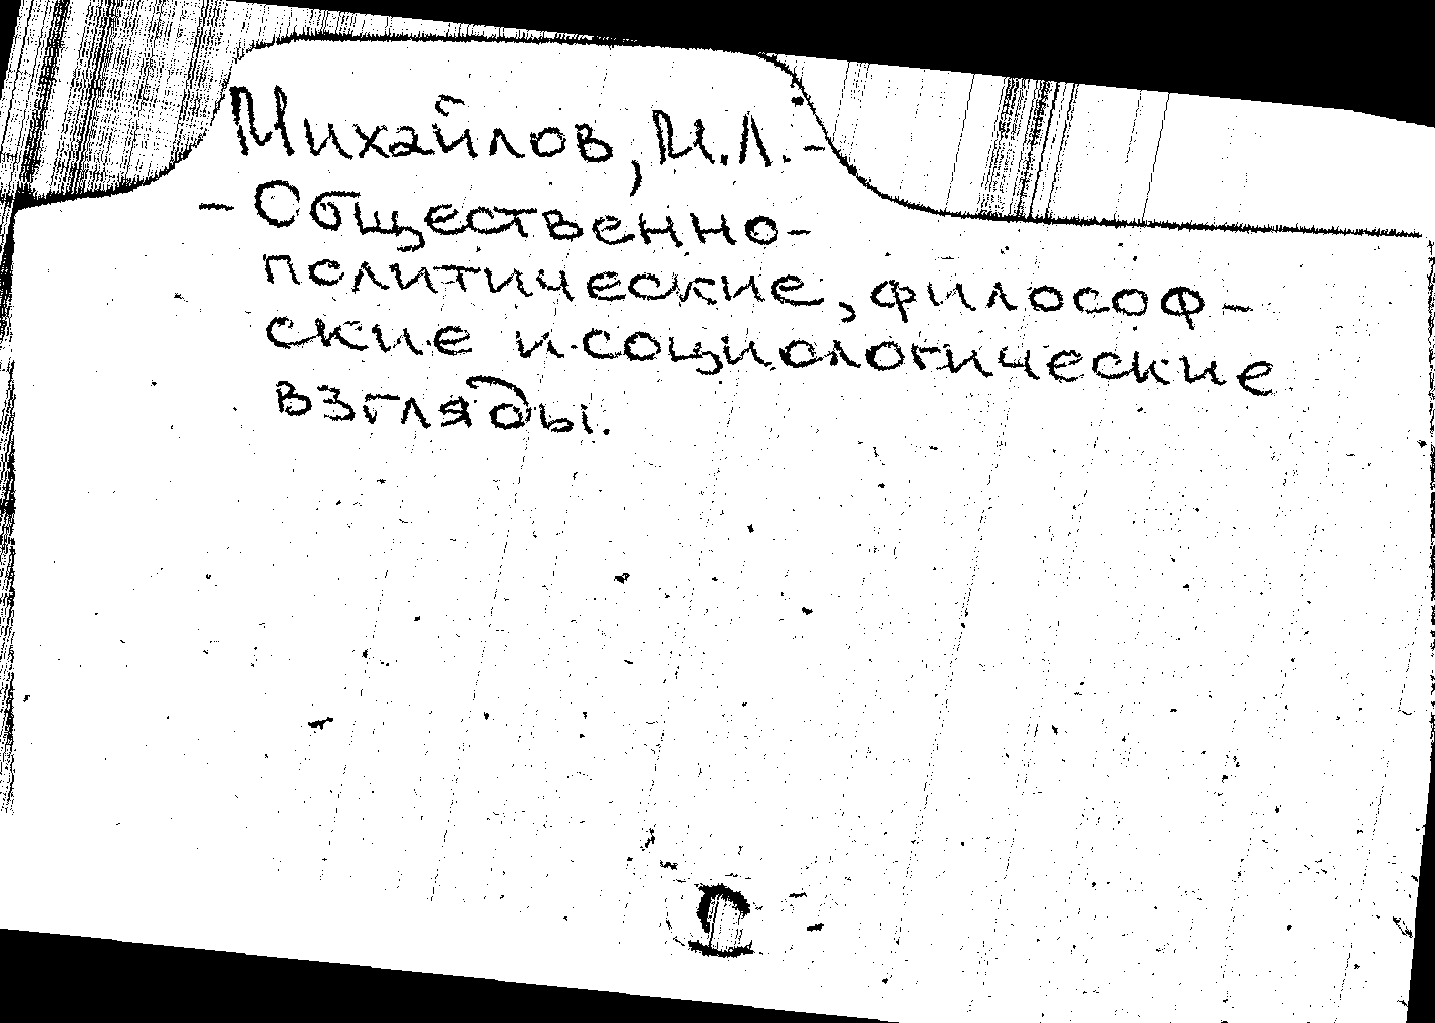 Михайлов, М.Л.-
- Общественно-
политические, философ-
ские и социологические
взгляды.